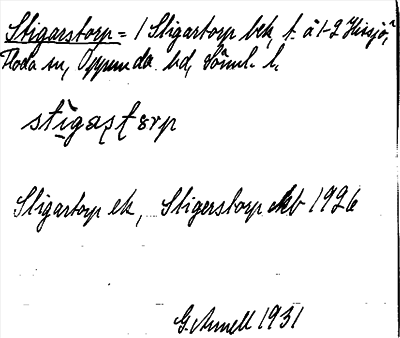 Stigarstorp = 1 Stigartorp bek, t. å 1-2 Hissjö,
Floda sn, Oppunda hd, Söml. l.
stigastorp
Stigartorp ek, Stigerstorp ekb 1926
G. Annell 1931